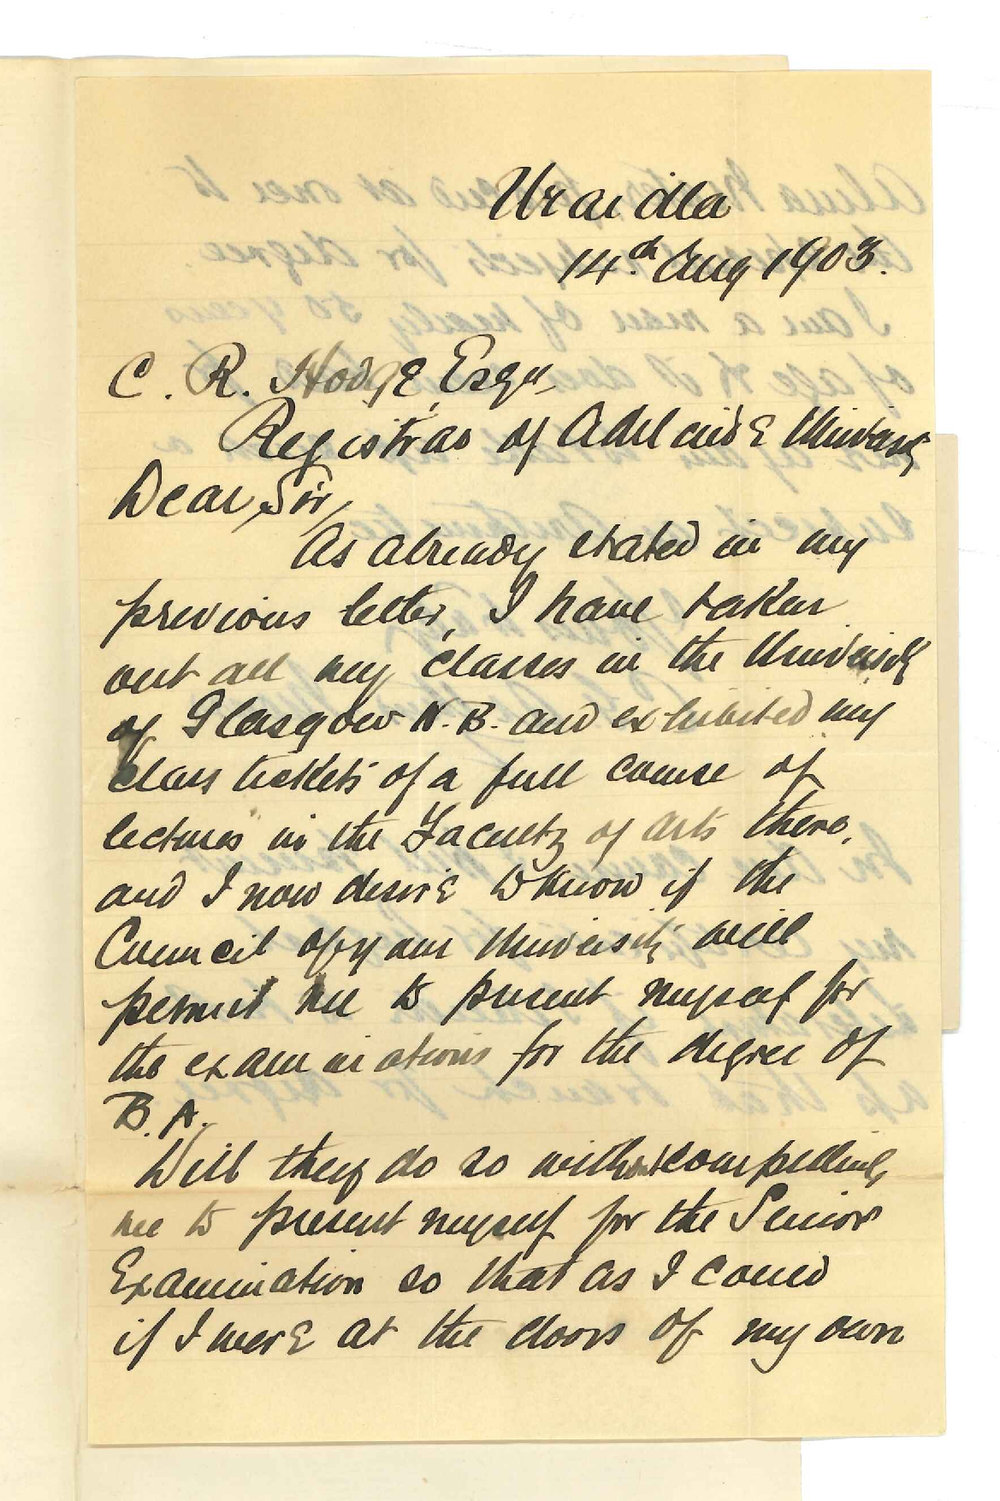 Uraidla
14th Aug 1903.
C. R. Hodge, Esqu,
Registrar of Adelaide University
Dear Sir,
As already stated in my
previous letter, I have taken
out all my classes in the University
of Glasgow N.B. and exhibited my
class tickets of a full course of
lectures in the Faculty of Arts there,
and I now desire to know if the
Council of your University will
permit me to present myself for
the examinations for the degree of
B. A.
Will they do so without compelling
me to present myself for the Senior
Examination so that as I could
if I were at the doors of my own